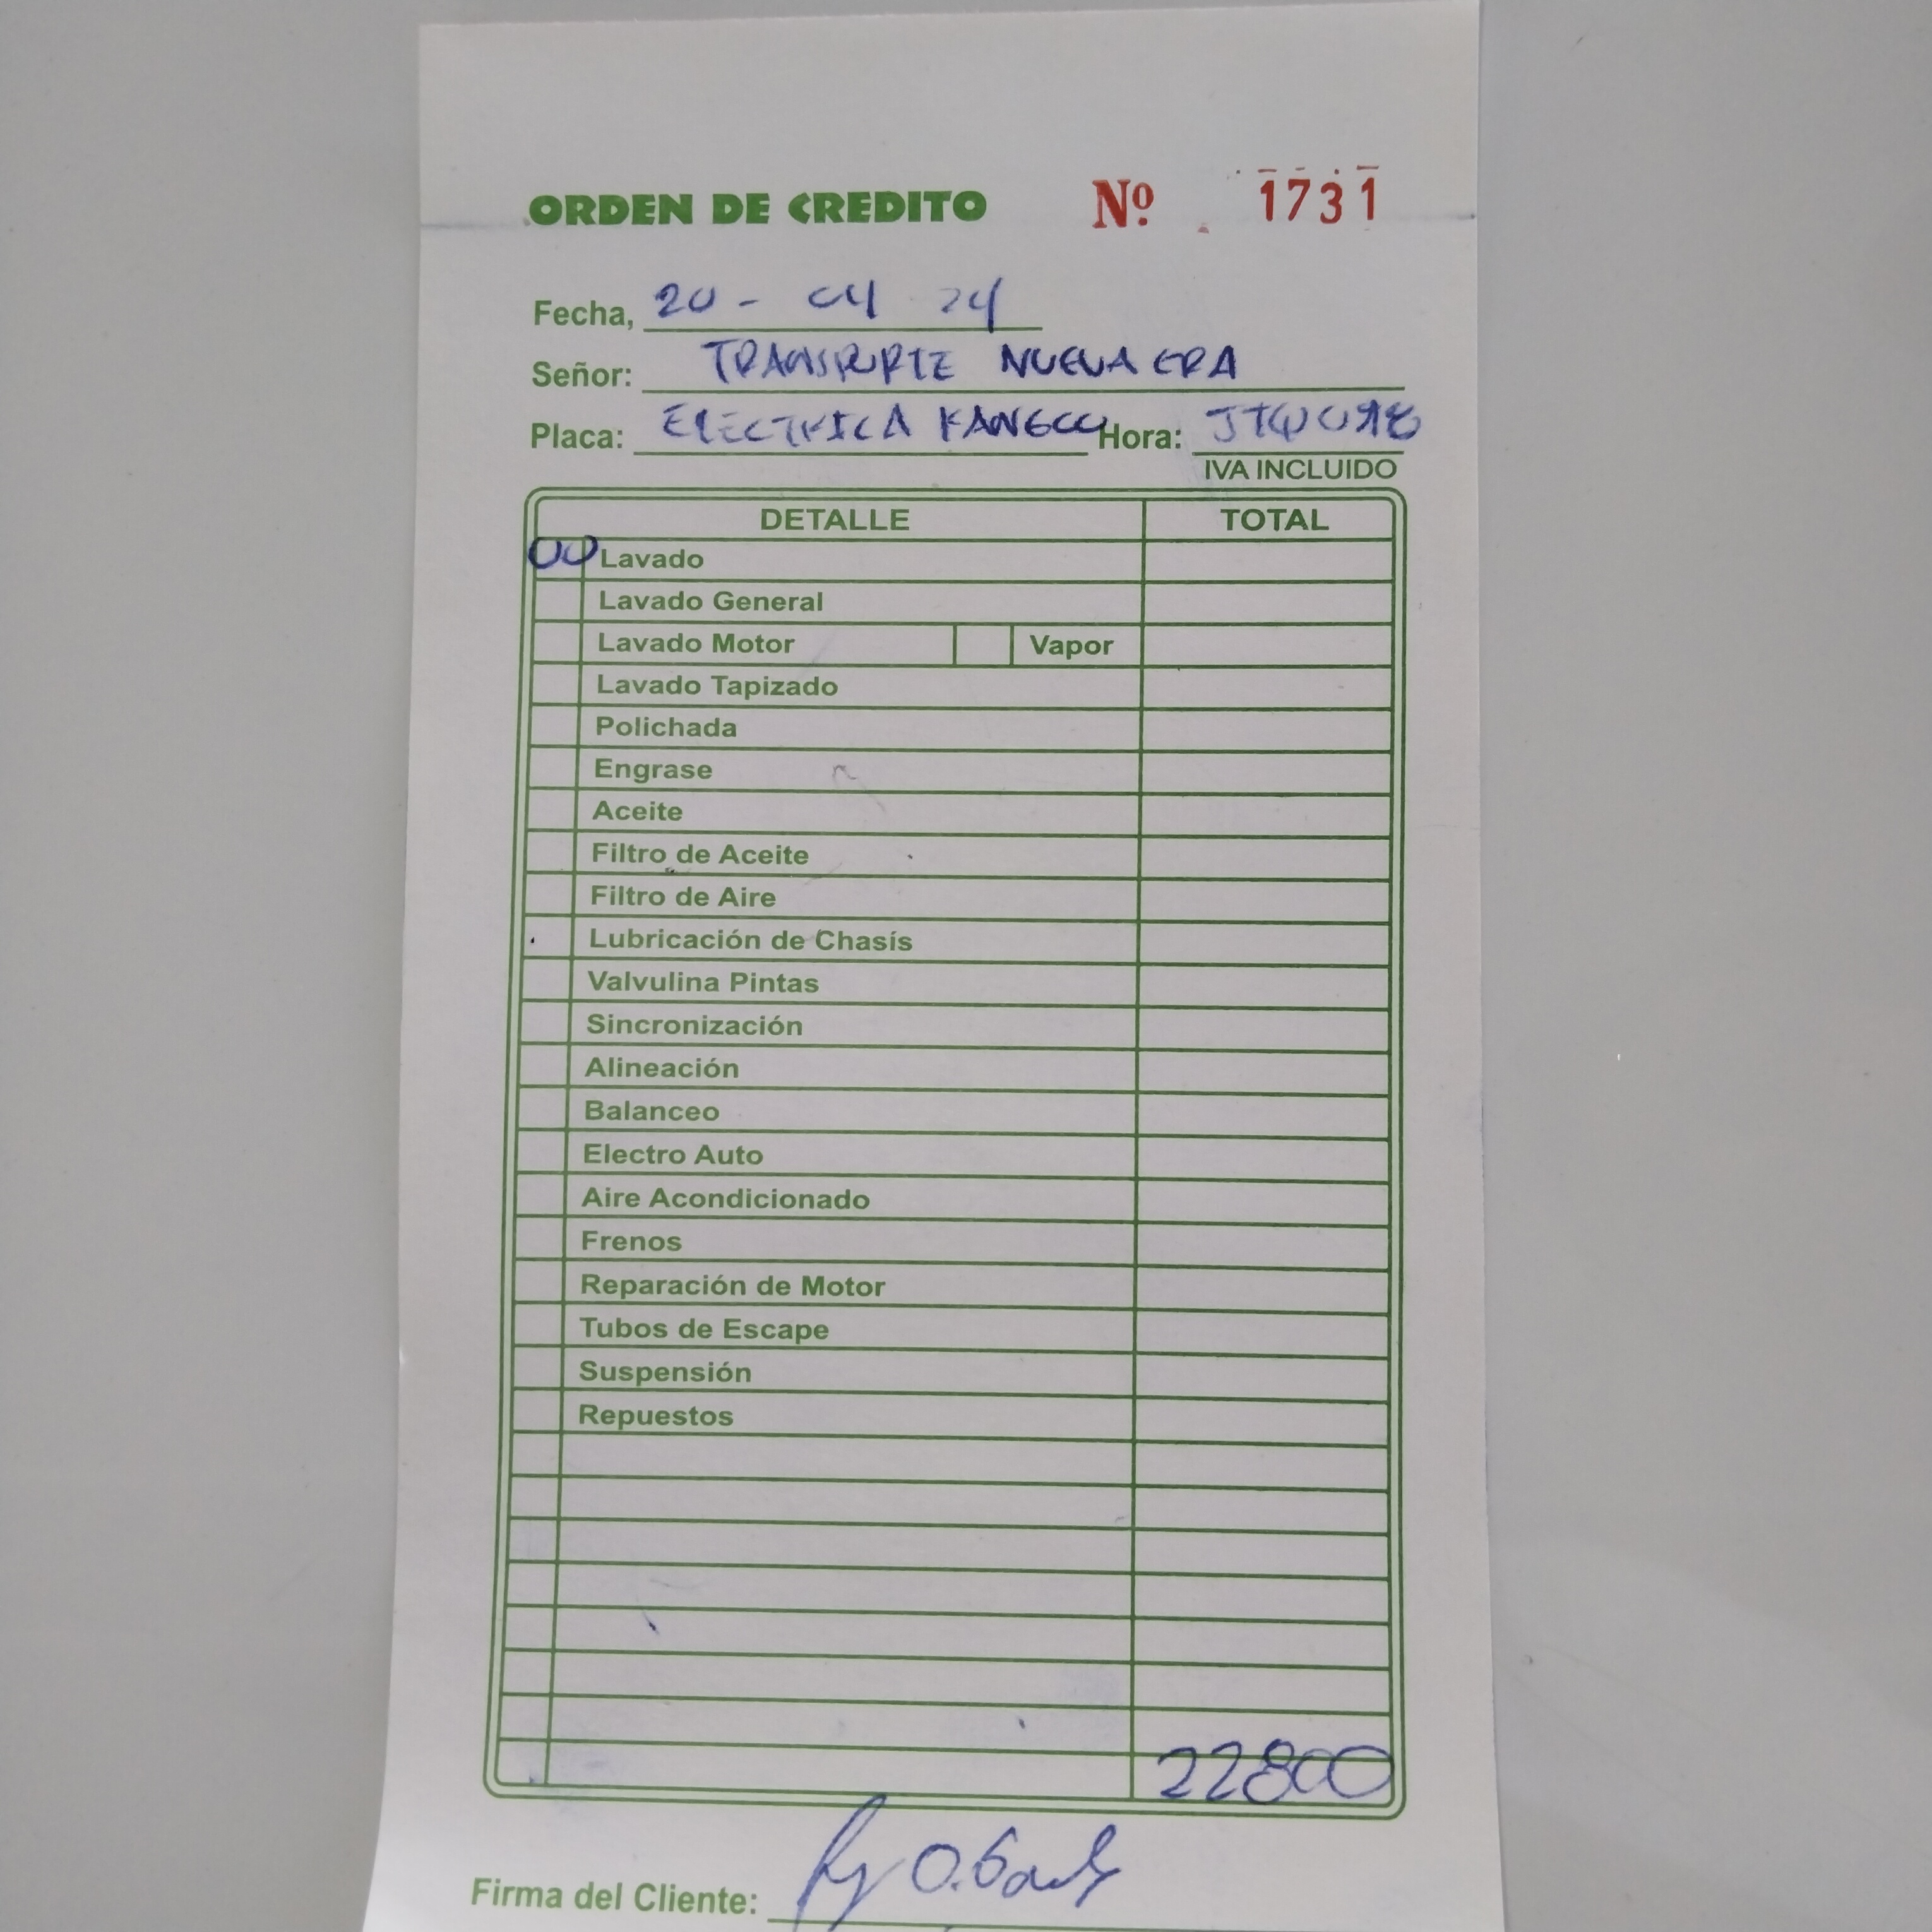 ORDEN DE CREDITO Nº 1731
Fecha, 20 - 04 24
Señor: TRANSPORTE NUEVA ERA
Placa: ELECTRICA KANGOO Hora:
IVA INCLUIDO
DETALLE TOTAL
Lavado
Lavado General
Lavado Motor Vapor
Lavado Tapizado
Polichada
Engrase
Aceite
Filtro de Aceite
Filtro de Aire
Lubricación de Chasís
Valvulina Pintas
Sincronización
Alineación
Balanceo
Electro Auto
Aire Acondicionado
Frenos
Reparación de Motor
Tubos de Escape
Suspensión
Repuestos
22800
Firma del Cliente: